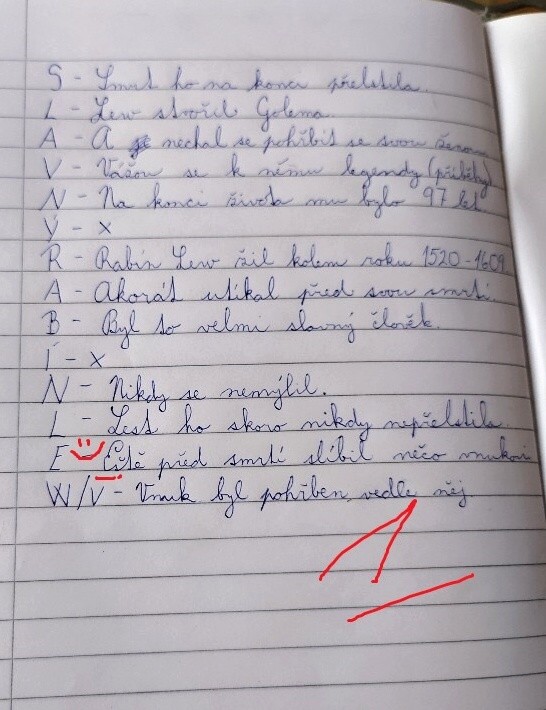 S - Smrt ho na konci přelstila.
L - Lew stvořil Golema.
A - A nechal se pohřbít se svou ženou
V - Vážou se k němu legendy (příběhy)
N - Na konci života mu bylo 97 let
Ý - x
R - Rabín Lew žil kolem roku 1520 - 1609
A - Akorát utíkal před svou smrtí.
B - Byl to velmi slavný člověk.
Í - x
N - Nikdy se nemýlil.
L - Lest ho skoro nikdy nepřelstila.
E - Eště před smrtí slíbil něco vnukovi
W/V - Vnuk byl pohřben vedle něj
1